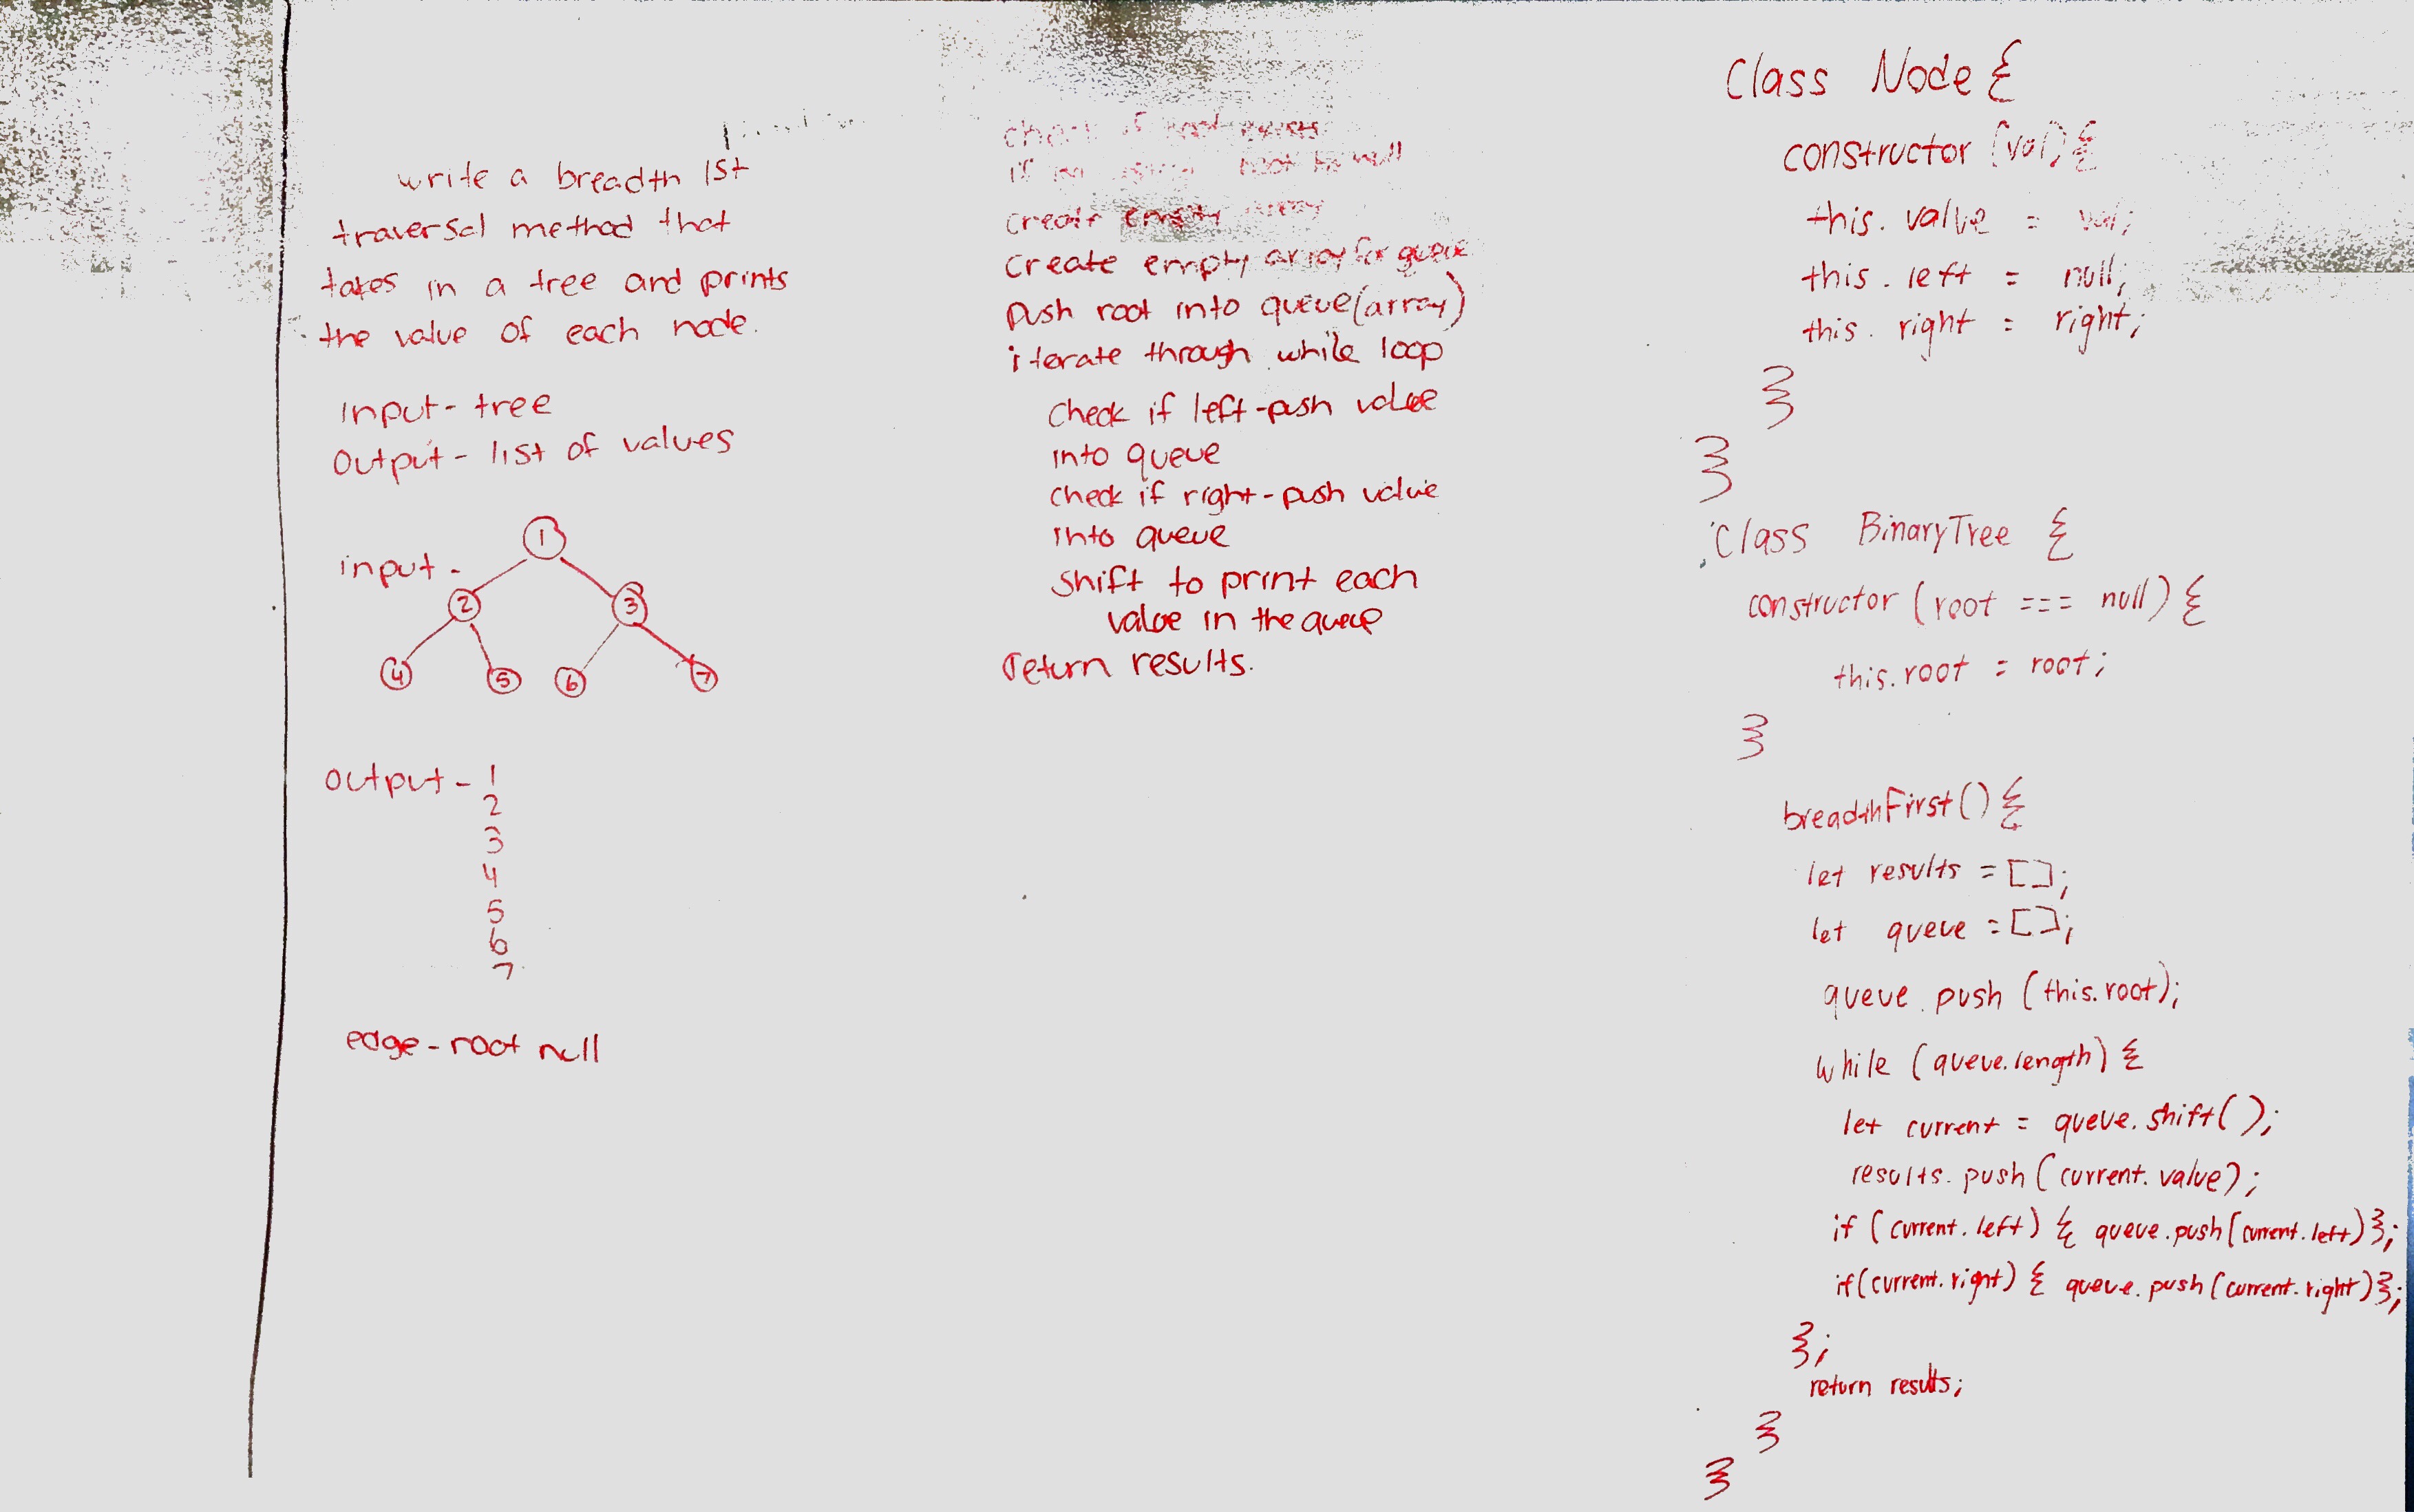 write a breadth 1st
traversal method that
takes in a tree and prints
the value of each node.
Input - tree
Output - list of values
input -
1
2
3
4
5
6
7
output - 1
2
3
4
5
6
7
edge - root null
check if root exists
if no root to null
create empty array
create empty array for queue
push root into queue (array)
iterate through while loop
check if left - push value
into queue
check if right - push value
into queue
shift to print each
value in the queue
return results.
Class Node {
constructor (val) {
this. value = val;
this. left = null;
this. right = right;
}
}
Class BinaryTree {
constructor (root === null) {
this.root = root;
}
breadthFirst() {
let results = [];
let queue = [];
queue.push (this.root);
while (queue.length) {
let current = queue.shift();
results.push (current.value);
if (current.left) { queue.push(current.left)};
if (current.right) { queue.push (current.right)};
};
return results;
}
}